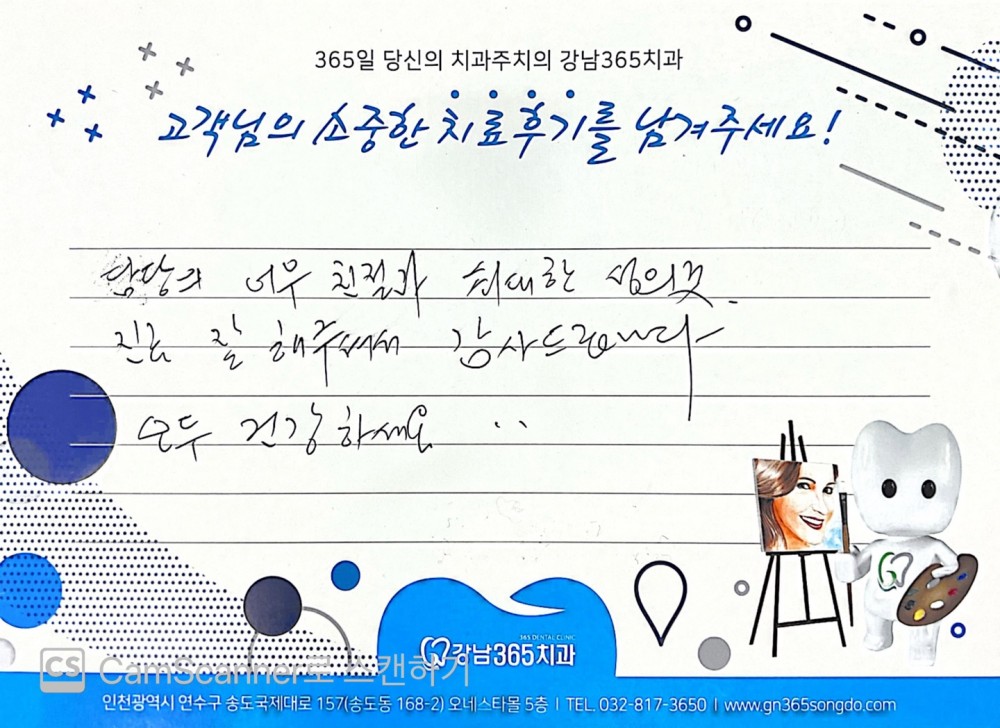 365일 당신의 치과주치의 강남365치과
고객님의 소중한 치료후기를 남겨주세요!
너무 친절과 최대한 성의껏
진료 잘 해주셔서 감사드립니다
모두 건강하세요 ..
365 DENTAL CLINIC
강남365치과
CS CamScanner로 스캔하기
인천광역시 연수구 송도국제대로 157(송도동 168-2) 오네스타몰 5층 | TEL. 032-817-3650 | www.gn365songdo.com